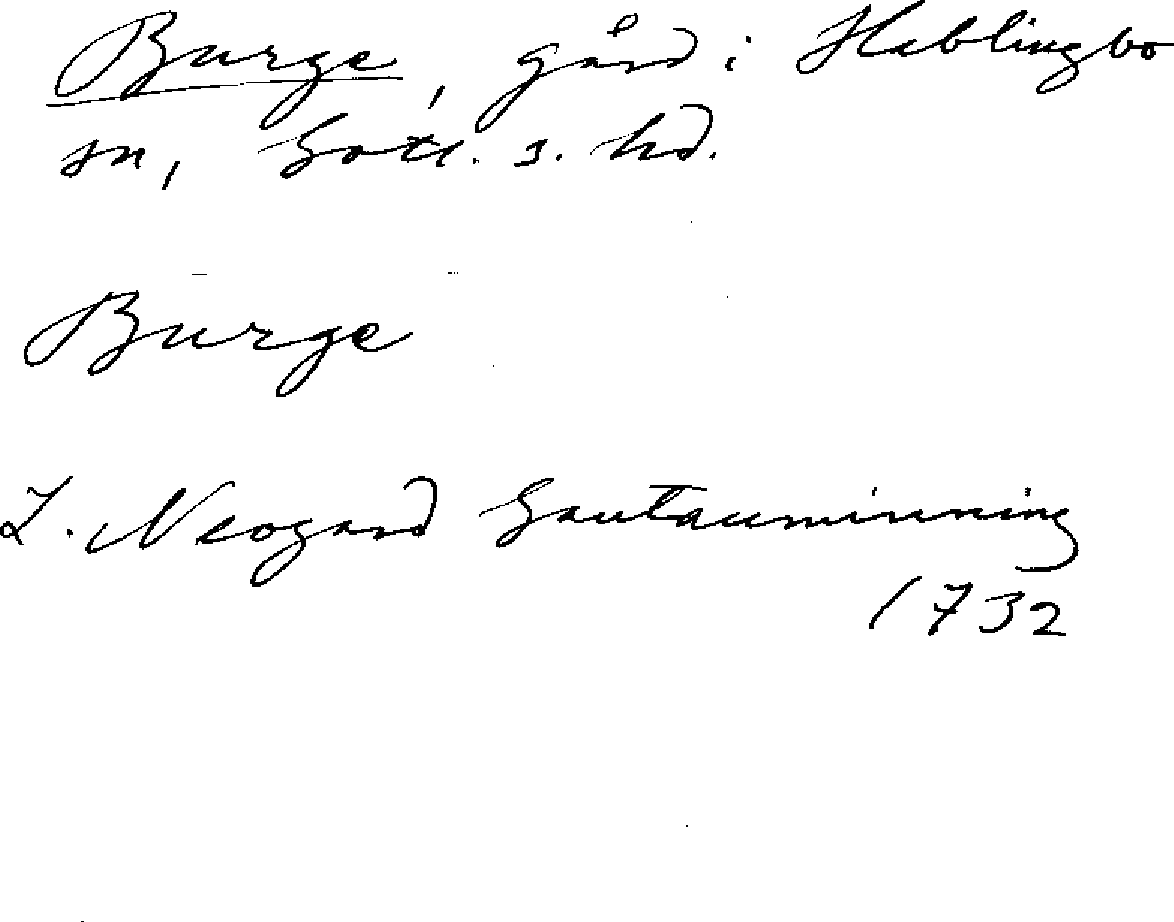 Burge, gård i Hablingbo
sn, Gotl. s. hd.
Burge
L. Neogard Gautauminning
1732